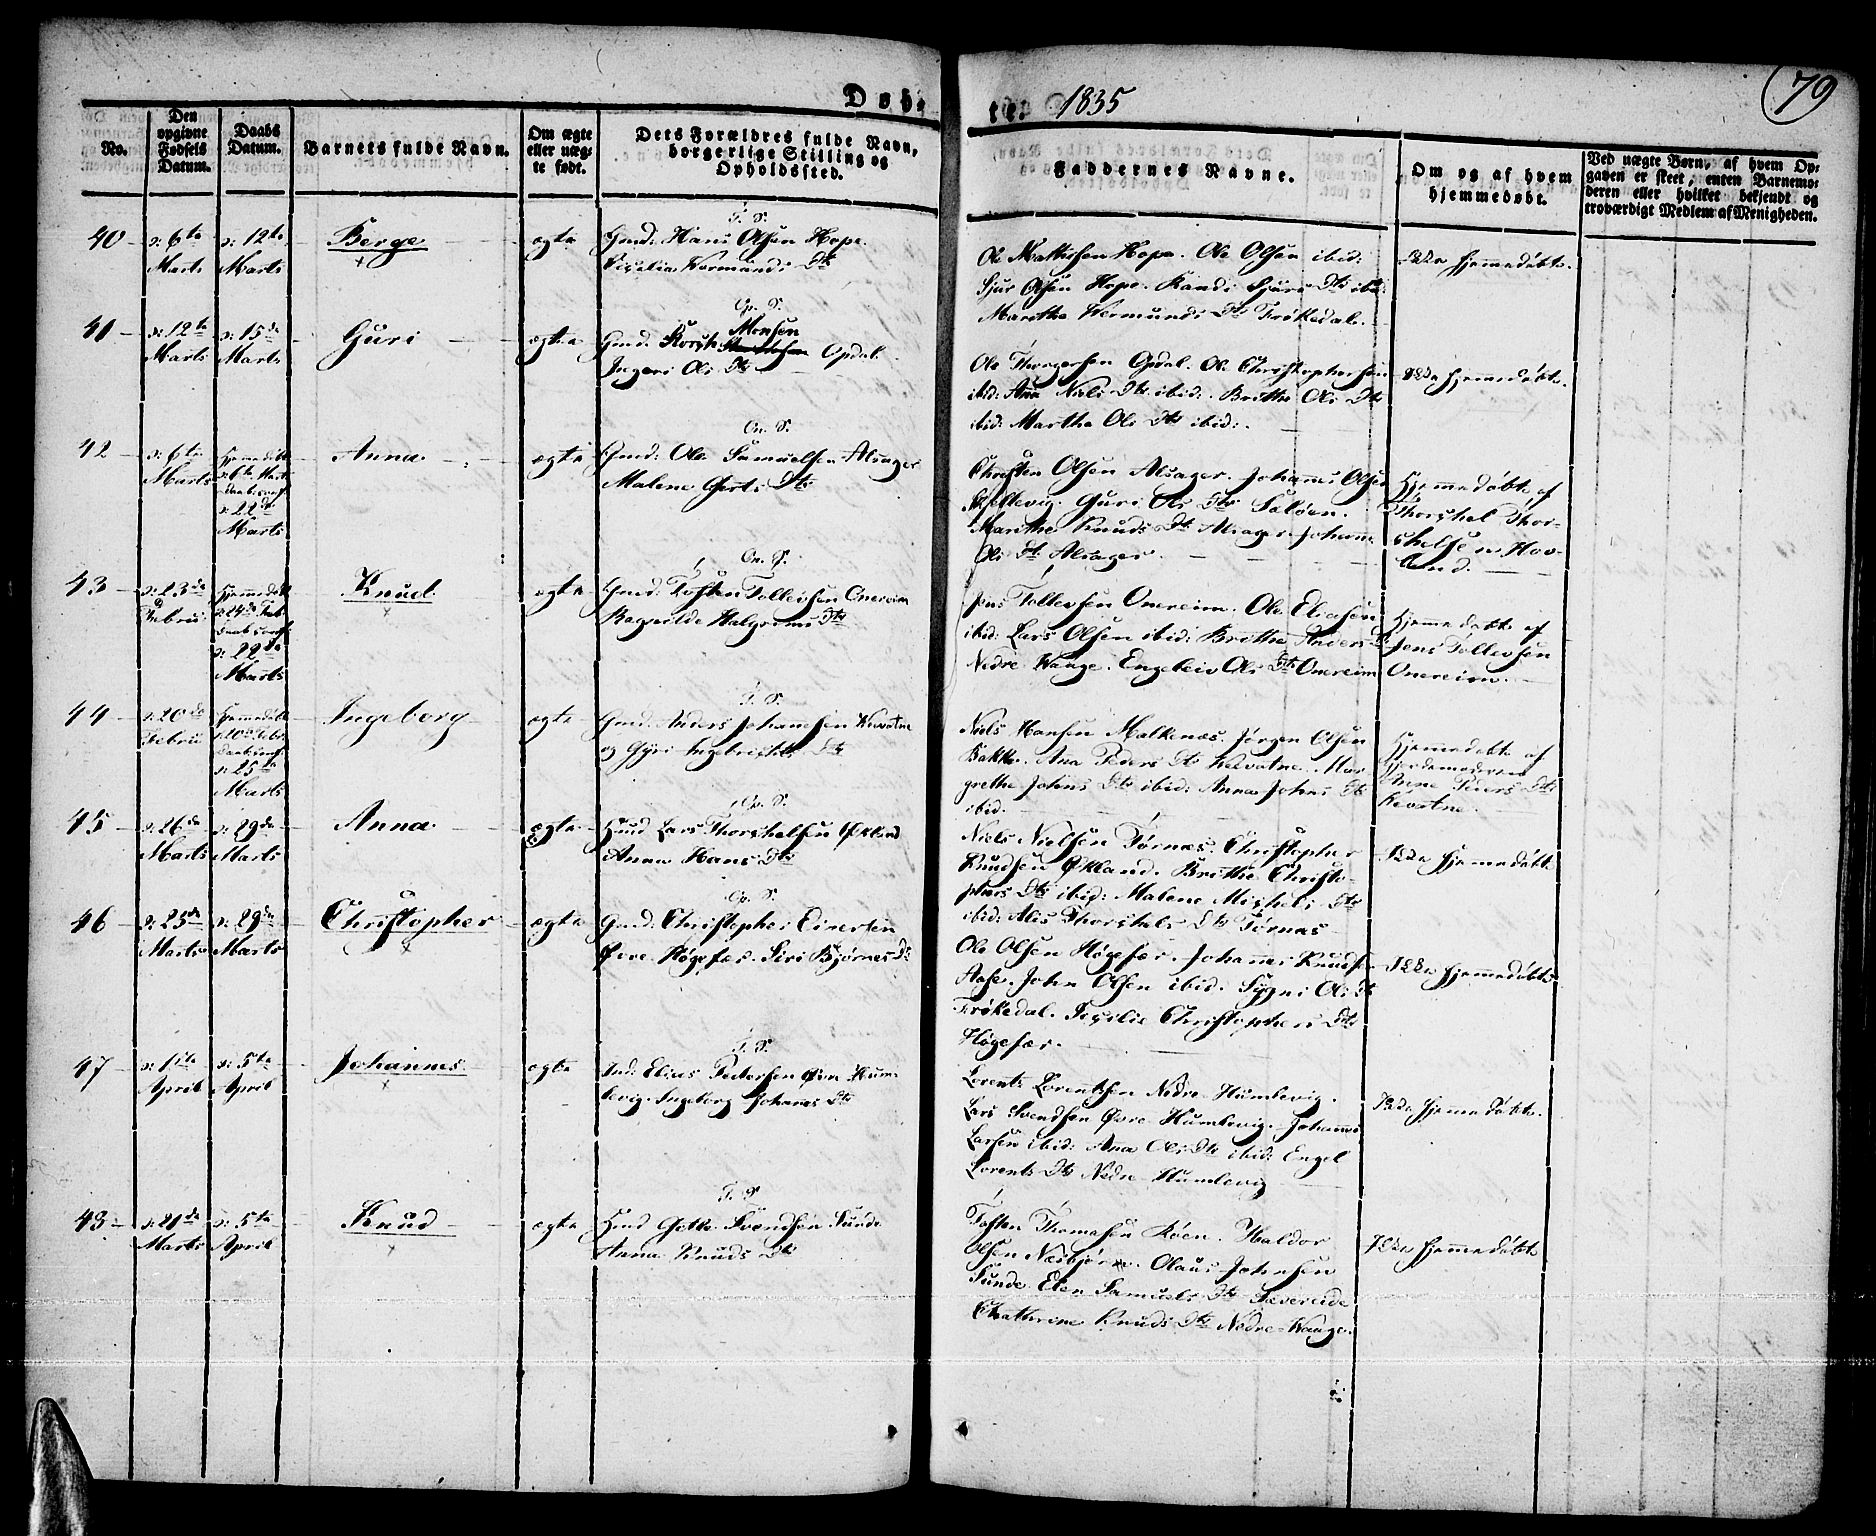 Døb-
te. 1835
79
No.
Den
opgivne
Fødsels
Datum.
Daabs
Datum.
Barnets fulde Navn.
Om ægte
eller uæg-
te født.
Dets Forældres fulde Navn,
borgerlige Stilling og
Opholdssted.
Faddernes Navne.
Om og af hvem
hjemmedøbt.
Ved uægte Børn, af hvem Op-
gaven er skeet, enten Barnemo-
deren eller hvilket bekjendt og
troværdigt Medlem af Menigheden.
40
d: 6te
Marts
d: 12te
Marts
Berge
ægte
F. S.
Gmd: Hans Olsen Hope
Vermunds Dtr
Ole Mathisen Hope. Ole Olsen ibid:
Sjur Olsen Hope. Randi Sjurs Dtr ibid:
Marithe Vermunds Dtr Frøkedal.
Ikke hjemmedøbt.
41
d: 12te
Marts
d: 15de
Marts
Guri
ægte
Op. S.
Monsen
Gmd: Opdal
Ingeri Ols Dtr
Ole Thorgersen Opdal. Ole Christophersen
ibid: Anna Niels Dtr ibid: Brithe Ols Dtr
ibid: Marthe Ols Dtr ibid:
Ikke hjemmedøbt.
42
d: 6te
Marts
Hjemmedøbt
d: 6te Marts
Daab conf.
d: 22de
Marts
Anna
ægte
On. S.
Gmd: Ole Samuelsen Alsager
Malene Gerts Dtr
Christen Olsen Alsager. Johannes Olsen
Skjellevig. Guri Ols Dtr Saløen.
Marithe Knuds Dtr Alsager. Johanne
Ols Dtr Alsager.
Hjemmedøbt af
Thorkel Thor-
kelsen Hov-
land.
43
d: 23de
Febru:
Hjemmedøbt
d: 24de Feb
Daab conf.
d: 22de
Marts
Knud
ægte
On. S.
Gmd: Tosten Tollevsen Onereim
Ragnilde Halgrims Dtr
Jens Tollevsen Onereim. Ole Eliasen
ibid: Lars Olsen ibid: Brithe Anders Dtr
Nedre Vaage. Engelein Ols Dtr Onereim
Hjemmedøbt af
Jens Tollevsen
Onereim.
44
d: 20de
Febru
Hjemmedøbt
d: 20de Febr.
Daab conf.
d: 25de
Marts
Ingeborg
ægte
F. S.
Gmd: Anders Johannesen Kevatne
og Gyri Ingebrigts Dtr
Niels Hansen Malkenæs. Jørgen Olsen
Bakke. Ana Peders Dtr Kevatne. Mar-
grethe Johns Dtr ibid: Anna Johns Dtr
ibid.
Hjemmedøbt af
Gjordemoderen
Anne Peders Dtr
Kevatne.
45
d: 26de
Marts
d: 29de
Marts
Anna
ægte
Op. S.
Huusd Lars Thorkelsen Økland
Anna Hans Dtr
Niels Nielsen Tørnæs. Christopher
Knudsen Økland. Brithe Christo-
phers Dtr ibid: Malene Michels Dtr
ibid: Alis Thorkels Dtr Tørnæs
Ikke hjemmedøbt
46
d: 25de
Marts
d: 29de
Marts
Christopher
ægte
Op. S.
Gmd: Christopher Einersen
Øvre Høgefær. Siri Bjørnes Dtr
Ole Olsen Høgefær. Johannes Knudsen
Aase. John Olsen ibid: Sygni Ols Dtr
Frøkedal. Cecilie Christophers Dtr
Høgefær.
Ikke hjemmedøbt.
47
d: 1ste
April
d: 5te
April
Johannes
ægte
F. S.
Ind: Elias Pedersen Øvre Hum-
levig. Ingeborg Johanes Dtr
Lorents Lorentsen Nedre Humlevig.
Lars Svendsen Øvre Humlevig. Johannes
Larsen ibid: Anna Ols Dtr ibid: Engel
Lorents Dtr Nedre Humlevig
Ikke hjemmedøbt.
48
d: 21de
Marts
d: 5te
April
Knud
ægte
F. S.
Huusd Gotte Svendsen Sunde
Anna Knuds Dtr
Tosten Thomesen Røen. Haldor
Olsen Nesbjørn. Olaus Johnsen
Sunde. Elen Samuels Dtr Sævereide
Chathrine Knuds Dtr Nedre-Vaage.
Ikke hjemmedøbt